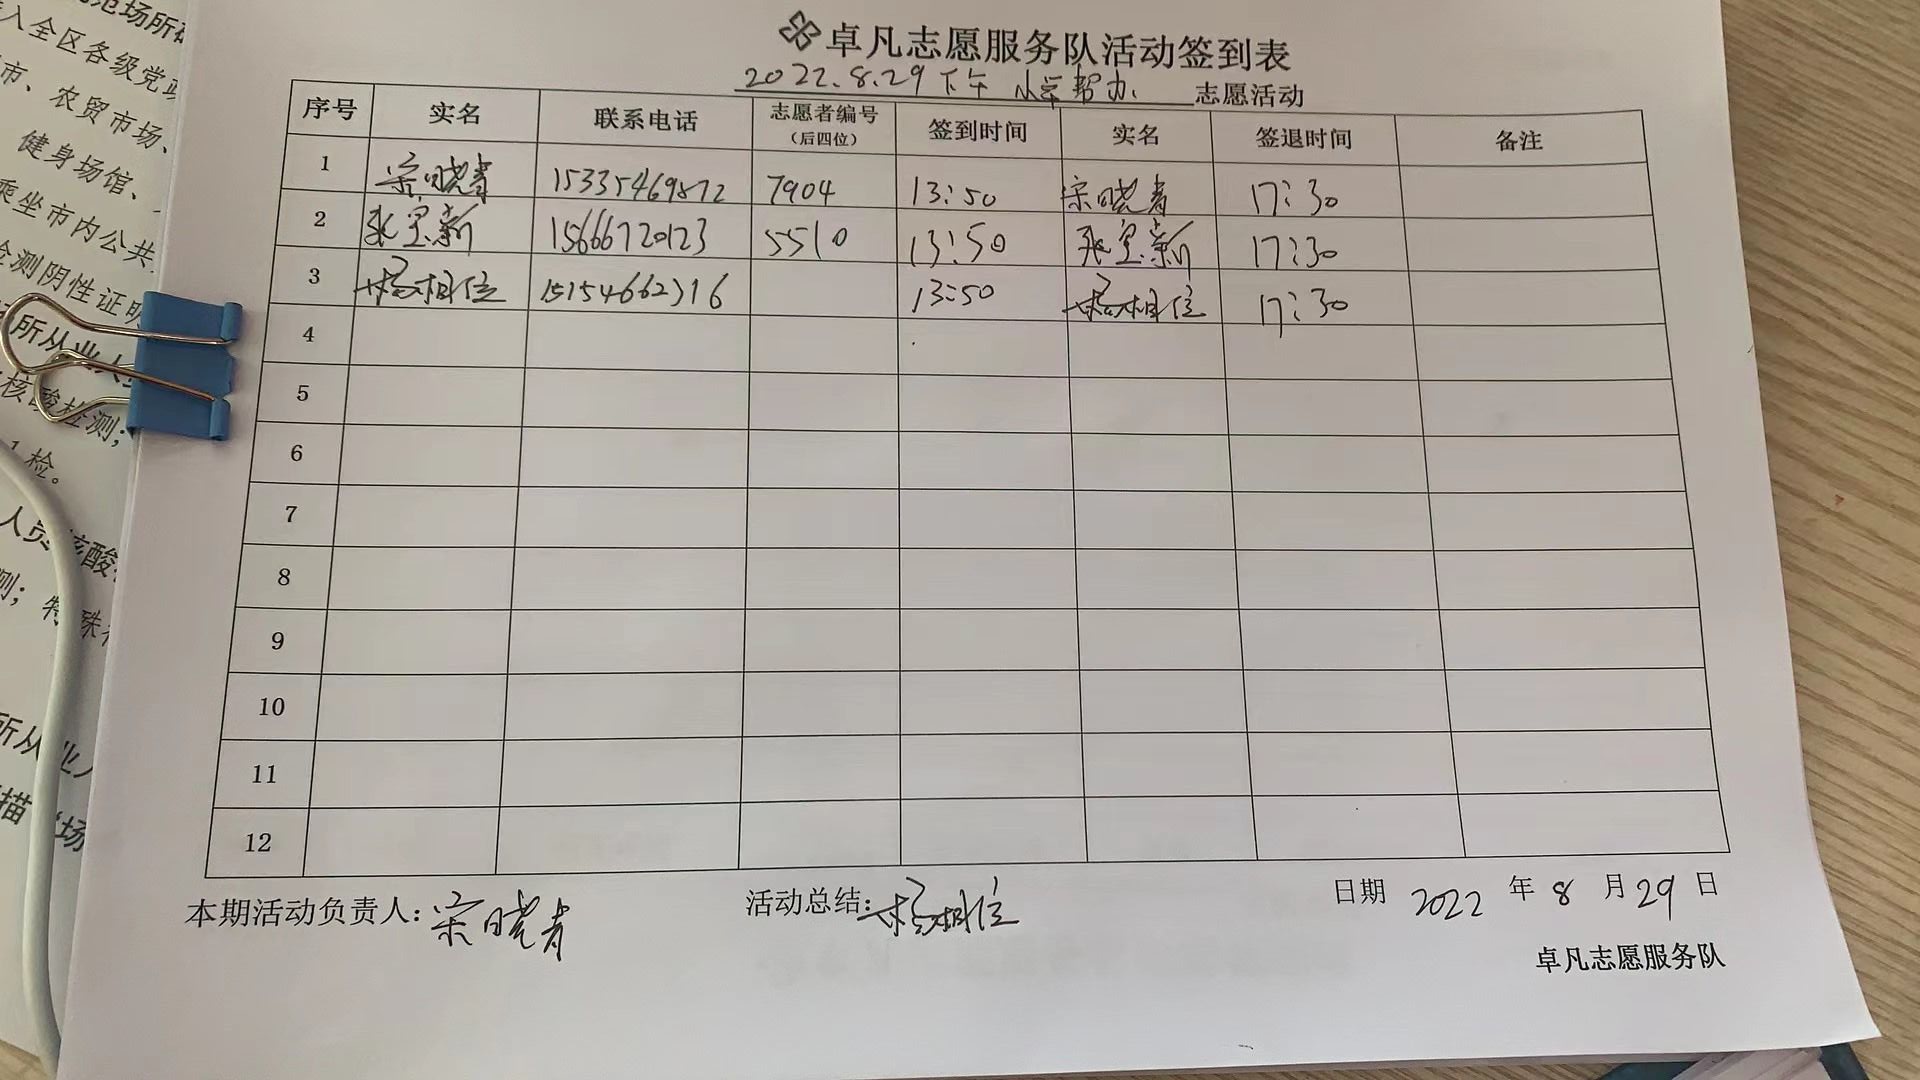 范场所
入全区各级党政
市、农贸市场、
健身场馆、
乘坐市内公共
检测阴性证明
所从业人
核酸检测；
1检。
人员核酸
测；特殊
所从业人
描“场
卓凡志愿服务队活动签到表
2022.8.29下午 小学帮办 志愿活动
序号 实名 联系电话 志愿者编号（后四位） 签到时间 实名 签退时间 备注
1 宋晓青 15335469872 7904 13:50 宋晓青 17:30
2 张 新 15666720123 5510 13:50 张 新 17:30
3 杨相位 15154662316 13:50 杨相位 17:30
4
5
6
7
8
9
10
11
12
本期活动负责人：宋晓青 活动总结：杨相位 日期 2022 年 8 月 29 日
卓凡志愿服务队